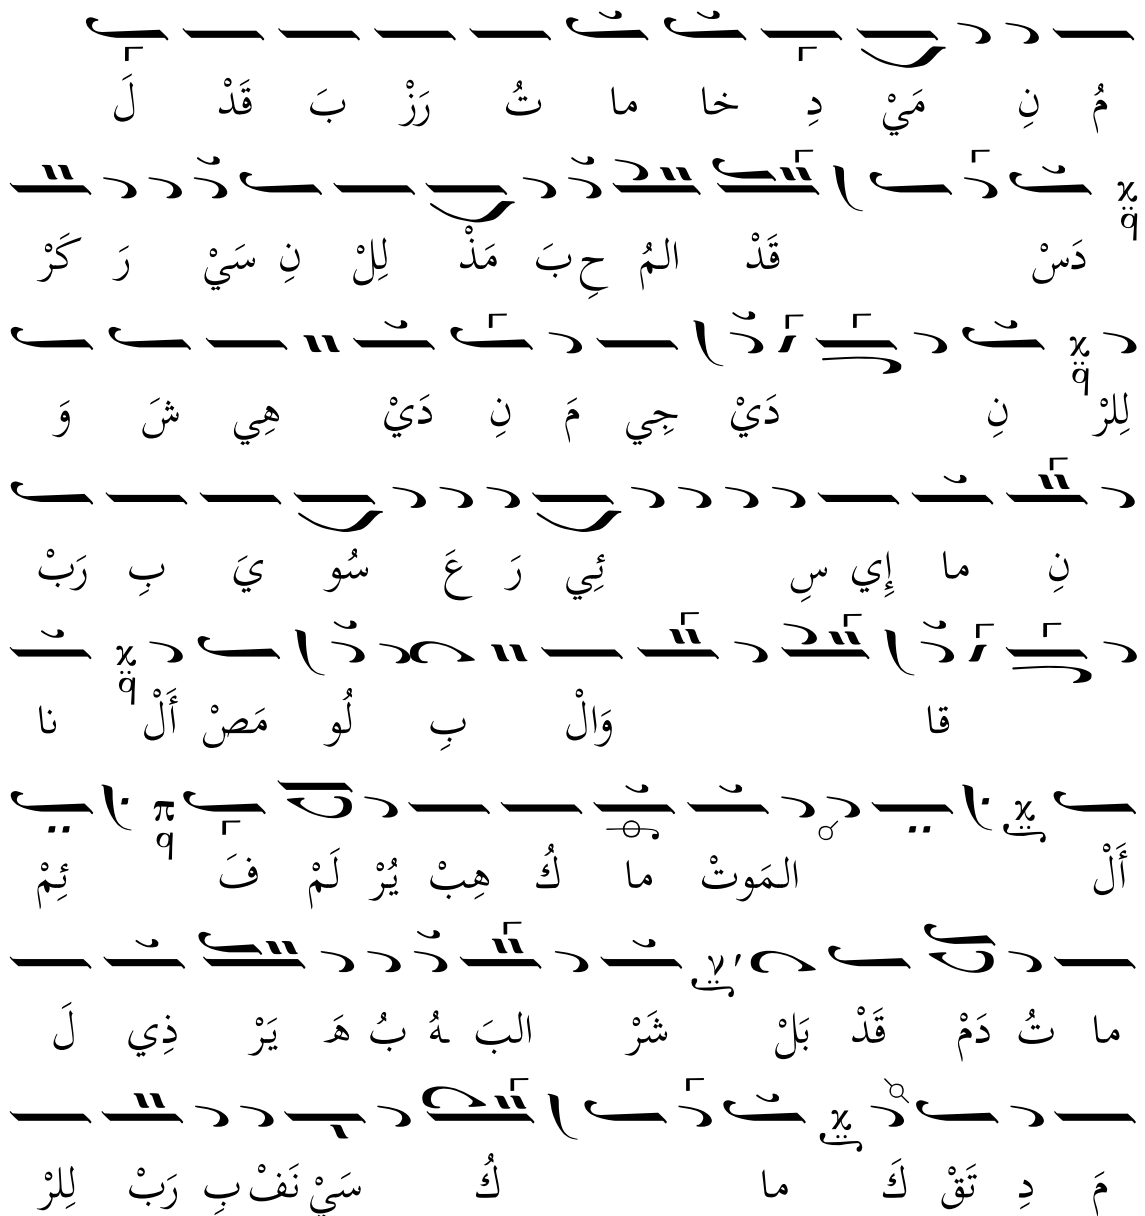 مُ نِ مَيْ دِ خا ما تُ رَزْ بَ قَدْ لَ
دَسْ قَدْ المُ حِ بَ مَذْ لِلْ نِ سَيْ رَ كَرْ
لِلرْ نِ دَيْ جِي مَ نِ دَيْ هِي شَ وَ
نِ ما إِي سِ ئِي رَ عَ سُو يَ بِ رَبْ
قا وَالْ بِ لُو مَصْ أَلْ نا
أَلْ المَوتْ ما كُ هِبْ يُرْ لَمْ فَ ئِمْ
ما تُ دَمْ قَدْ بَلْ شَرْ البَ ـهُ بُ هَ يَرْ ذِي لَ
مَ دِ تَقْ كَ ما كُ سَيْ نَفْ بِ رَبْ لِلرْ